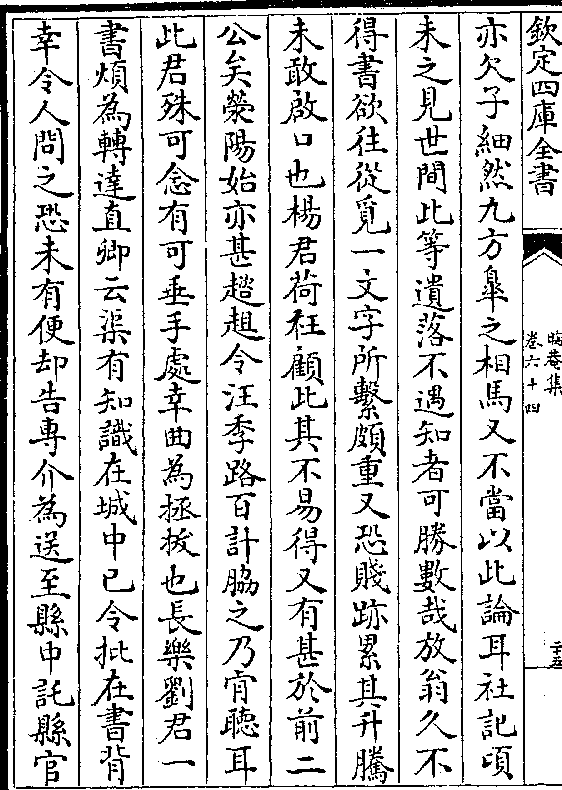 欽定四庫全書
晦菴集
卷六十四
二五
亦欠子細然九方臯之相馬又不當以此論耳社記頃
未之見世間此等遺落不遇知者可勝數哉放翁久不
得書欲往從覓一文字所繫頗重又恐賤跡累其升騰
未敢啟口也楊君荷枉顧此其不易得又有甚於前二
公矣滎陽始亦甚趦趄令汪季路百計脇之乃肯聽耳
此君殊可念有可垂手處幸曲為拯拔也長樂劉君一
書煩為轉達直卿云渠有知識在城中已令批在書背
幸令人問之恐未有便却告專介為送至縣中託縣官